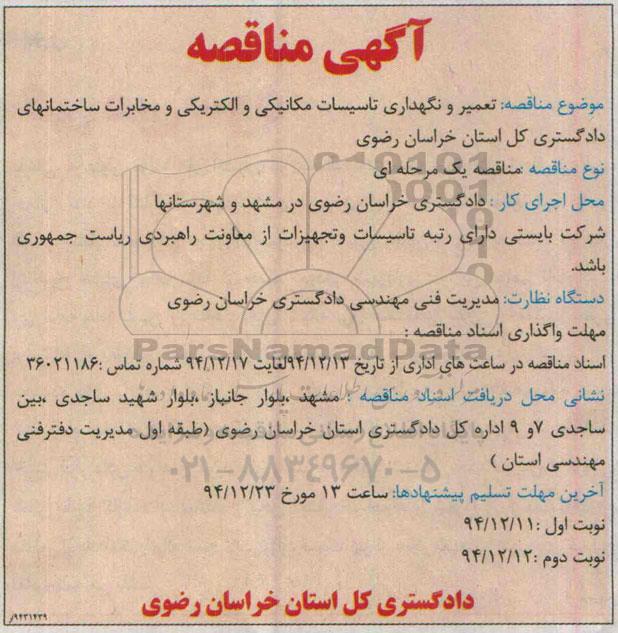 آگهی مناقصه
موضوع مناقصه: تعمیر و نگهداری تاسیسات مکانیکی و الکتریکی و مخابرات ساختمانهای
دادگستری کل استان خراسان رضوی
نوع مناقصه :مناقصه یک مرحله ای
محل اجرای کار : دادگستری خراسان رضوی در مشهد و شهرستانها
شرکت بایستی دارای رتبه تاسیسات وتجهیزات از معاونت راهبردی ریاست جمهوری
باشد.
دستگاه نظارت: مدیریت فنی مهندسی دادگستری خراسان رضوی
مهلت واگذاری اسناد مناقصه :
ParsNamadData
اسناد مناقصه در ساعت های اداری از تاریخ ۹۴/۱۲/۱۳لغایت ۹۴/۱۲/۱۷ شماره تماس :۳۶۰۲۱۱۸۶
نشانی محل دریافت اسناد مناقصه : مشهد ،بلوار جانباز ،بلوار شهید ساجدی ،بین
ساجدی ۷و ۹ اداره کل دادگستری استان خراسان رضوی (طبقه اول مدیریت دفترفنی
مهندسی استان )
۰۲۱-۸۸۳۴۹۶۷۰-۵
آخرین مهلت تسلیم پیشنهادها: ساعت ۱۳ مورخ ۹۴/۱۲/۲۳
نوبت اول :۹۴/۱۲/۱۱
نوبت دوم :۹۴/۱۲/۱۲
دادگستری کل استان خراسان رضوی
۹۴۳۱۴۳۹/و